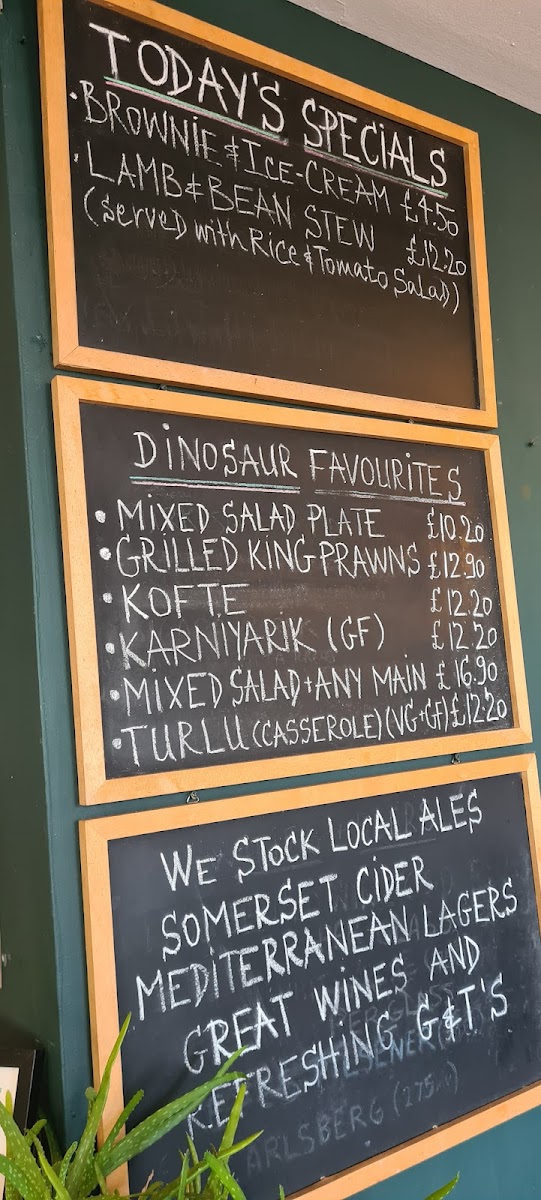 TODAY'S SPECIALS
• BROWNIE & ICE-CREAM £4.50
• LAMB & BEAN STEW £12.20
(Served with Rice & Tomato Salad)
DINOSAUR FAVOURITES
• MIXED SALAD PLATE £10.20
• GRILLED KING PRAWNS £12.90
• KOFTE £12.20
• KARNIYARIK (GF) £12.20
• MIXED SALAD + ANY MAIN £16.90
• TURLU (CASSEROLE) (VG+GF) £12.20
WE STOCK LOCAL ALES
SOMERSET CIDER
MEDITERRANEAN LAGERS
GREAT WINES AND
REFRESHING G&T'S
ARLSBERG